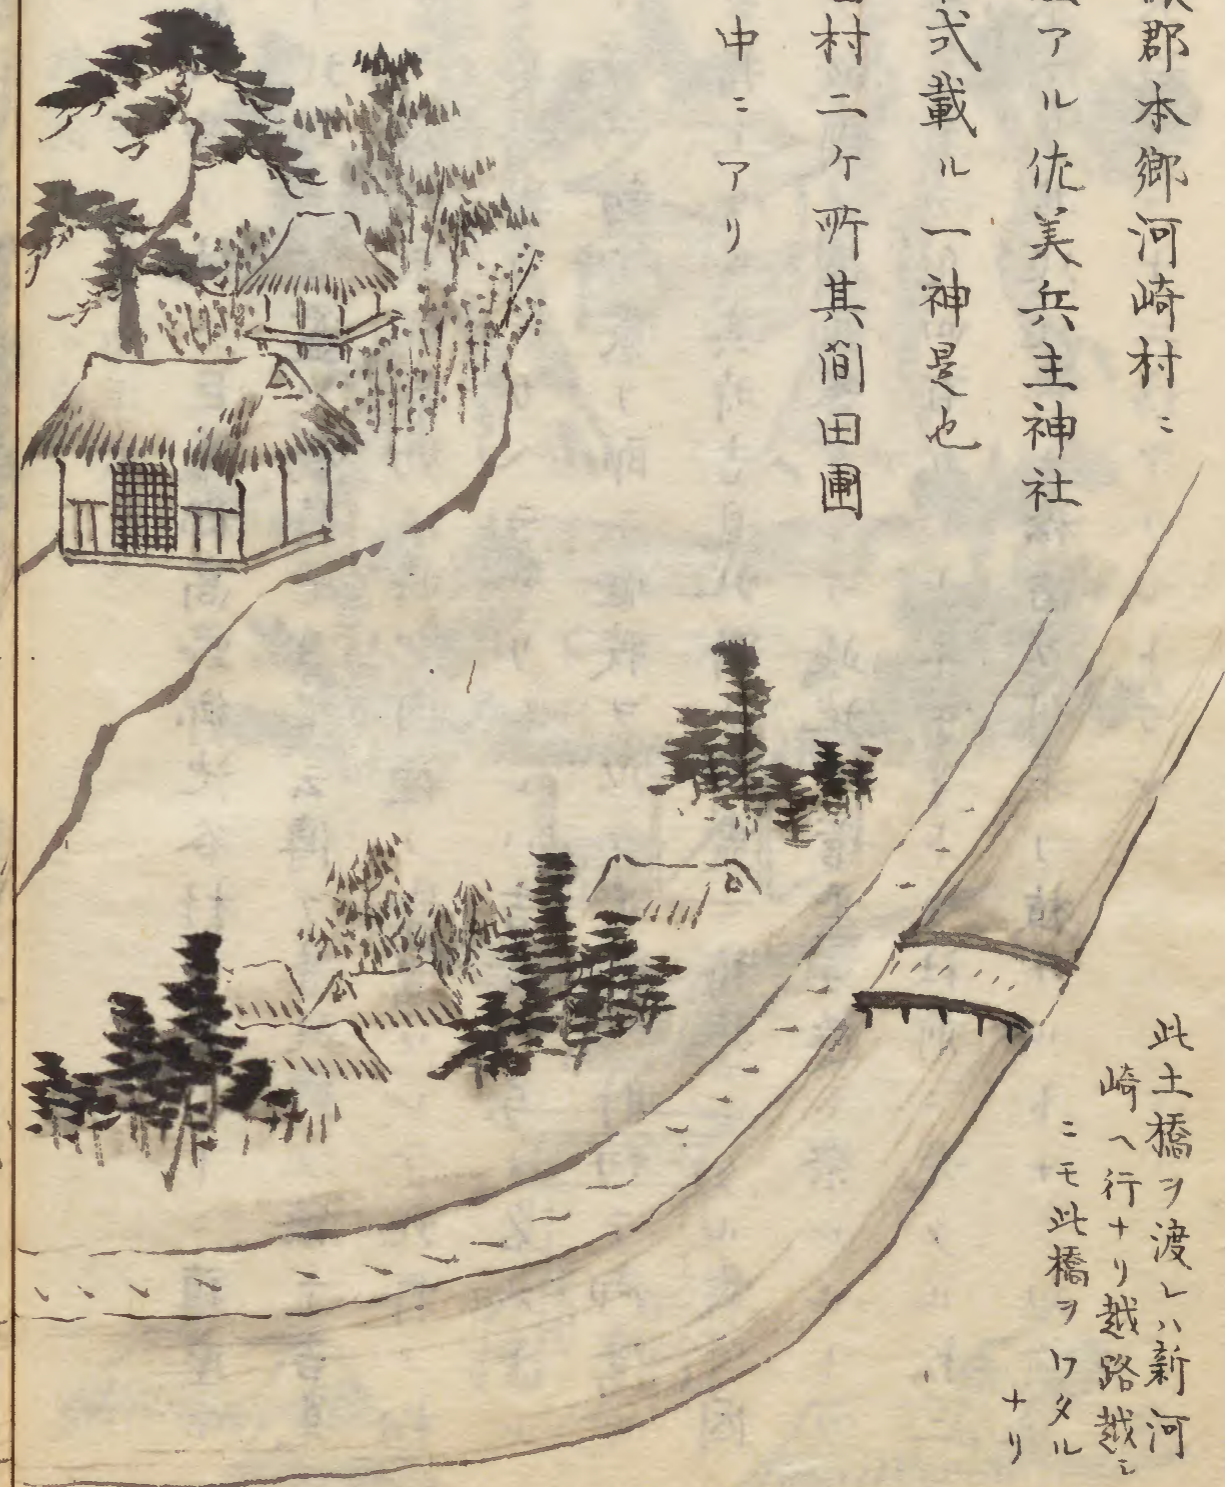 郡本郷河崎村ニ
アル佐美兵主神社
式載ル一神是也
村二ケ所其間田圃
中ニアリ
此土橋ヲ渡レハ新河
崎ヘ行ナリ越路越ニ
ニモ此橋ヲワタル
ナリ